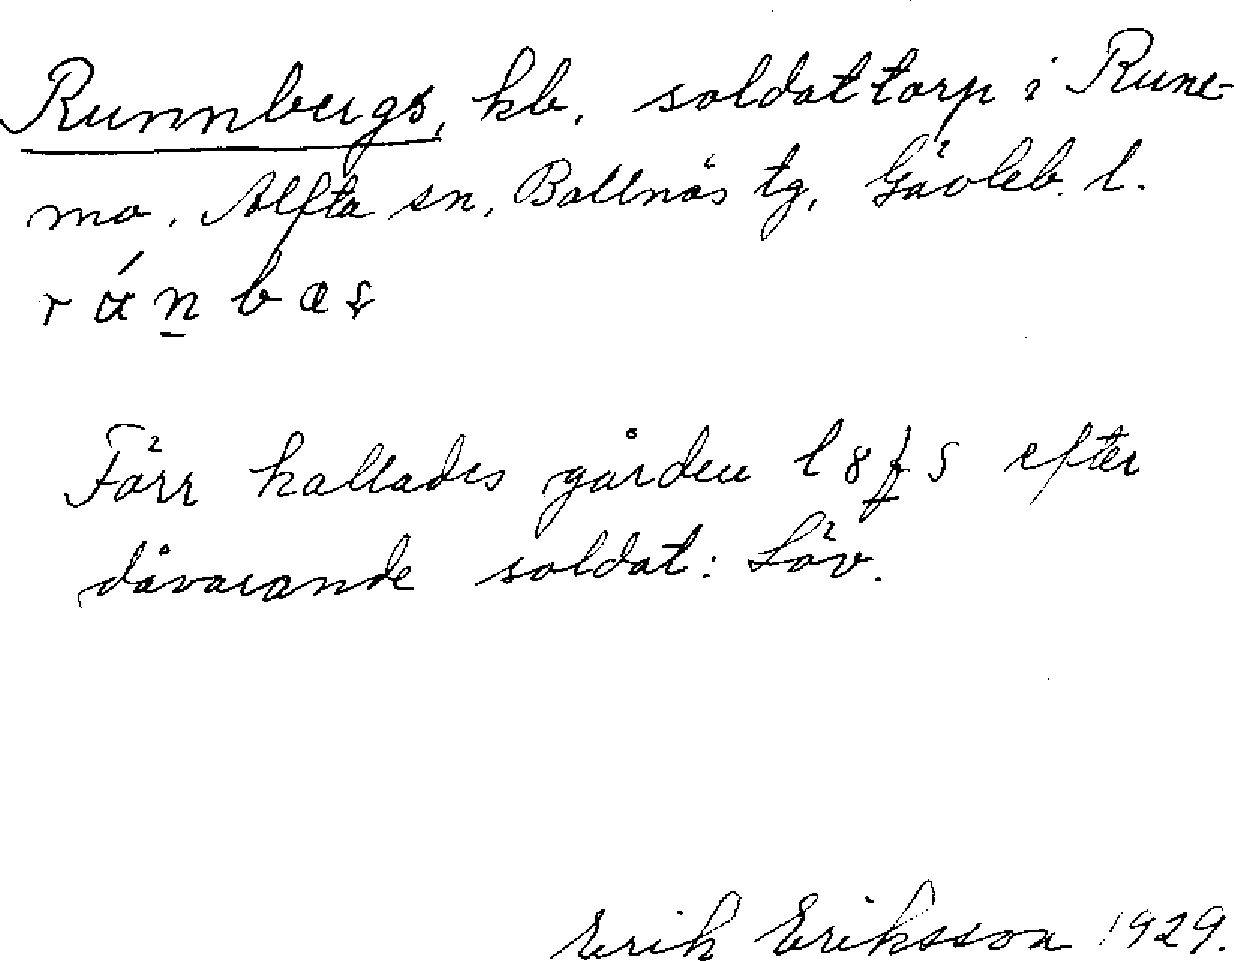 Runnbergs, hb. soldattorp i Rune-
mo. Alfta sn, Bollnäs tg, Gävleb. l.
Förr kallades gården l8f̲s efter
dåvarande soldat: Löv.
Erik Eriksson 1929.